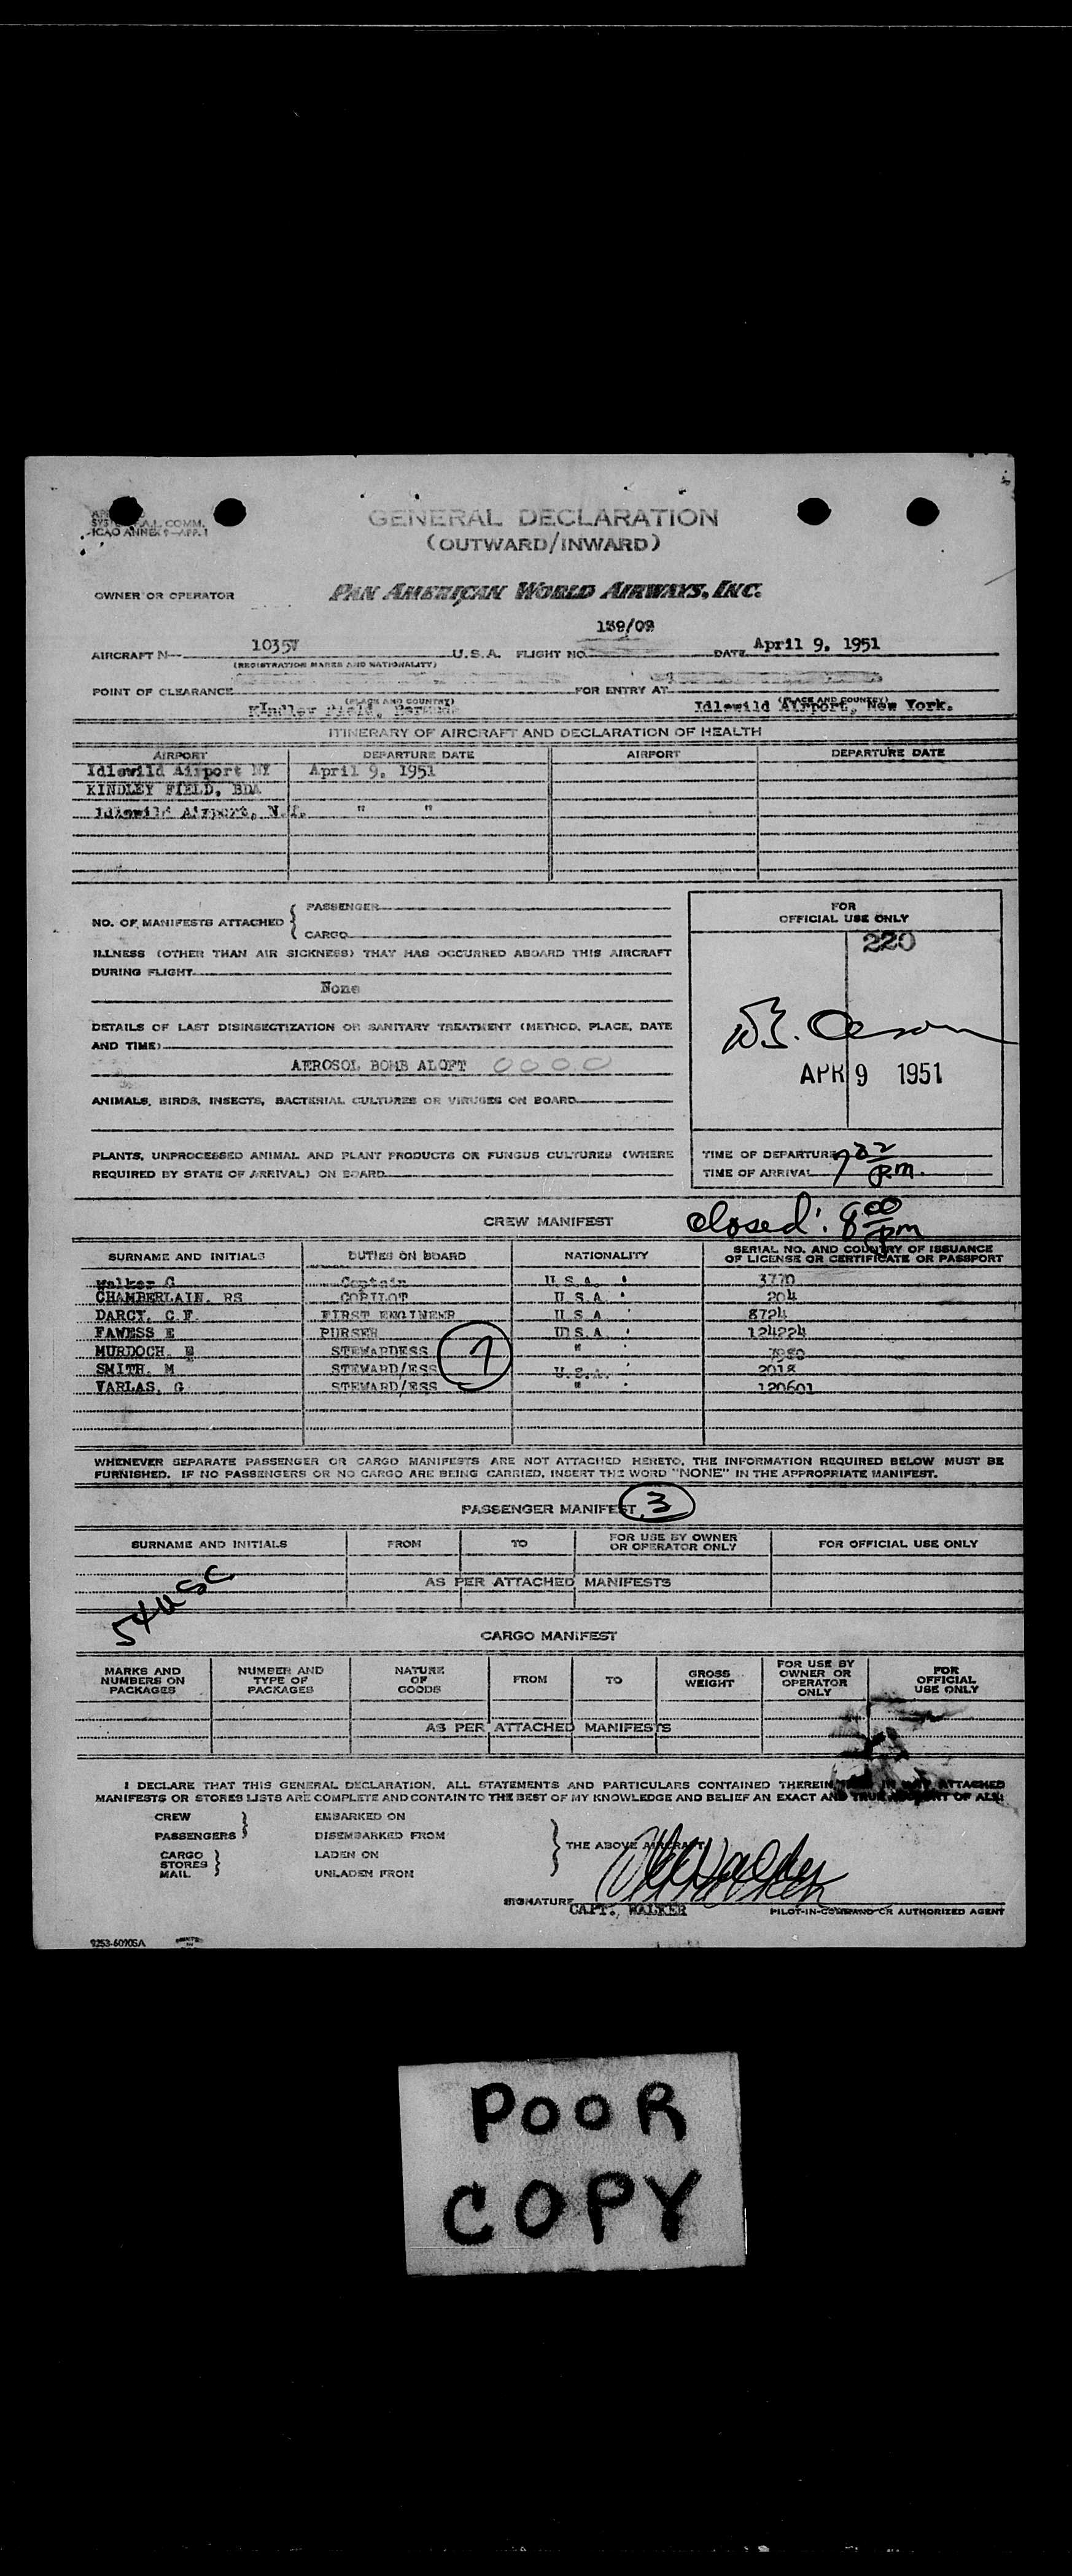 GENERAL DECLARATION
(OUTWARD/INWARD)
SYS F.A.L. COMM.
ICAO ANNEX 9—APP. 1
OWNER OR OPERATOR PAN AMERICAN WORLD AIRWAYS, INC.
139/09
AIRCRAFT N— 1035V U.S.A. FLIGHT NO. DATE April 9, 1951
(REGISTRATION MARKS AND NATIONALITY)
POINT OF CLEARANCE FOR ENTRY AT
(PLACE AND COUNTRY) (PLACE AND COUNTRY)
Field, Idlewild Airport, New York.
ITINERARY OF AIRCRAFT AND DECLARATION OF HEALTH
AIRPORT DEPARTURE DATE AIRPORT DEPARTURE DATE
Idlewild Airport NY April 9, 1951
KINDLEY FIELD, BDA
Idlewild Airport, N.Y. " "
NO. OF MANIFESTS ATTACHED { PASSENGER
CARGO
FOR
OFFICIAL USE ONLY
220
ILLNESS (OTHER THAN AIR SICKNESS) THAT HAS OCCURRED ABOARD THIS AIRCRAFT
DURING FLIGHT
None
DETAILS OF LAST DISINSECTIZATION OR SANITARY TREATMENT (METHOD, PLACE, DATE
AND TIME)
AEROSOL BOMB ALOFT 0000
APR 9 1951
ANIMALS, BIRDS, INSECTS, BACTERIAL CULTURES OR VIRUSES ON BOARD
PLANTS, UNPROCESSED ANIMAL AND PLANT PRODUCTS OR FUNGUS CULTURES (WHERE
REQUIRED BY STATE OF ARRIVAL) ON BOARD
TIME OF DEPARTURE
TIME OF ARRIVAL 7 32 pm.
closed: 8 00 pm
CREW MANIFEST
SURNAME AND INITIALS DUTIES ON BOARD NATIONALITY SERIAL NO. AND COUNTRY OF ISSUANCE
OF LICENSE OR CERTIFICATE OR PASSPORT
Walker C Captain U.S.A. 3770
CHAMBERLAIN, RS COPILOT U.S.A. 204
DARCY, C F. FIRST ENGINEER U S A 8724
FAWESS E PURSER U S A 124224
MURDOCH. E STEWARDESS " 7950
SMITH, M STEWARD/ESS U.S.A. 2018
VARLAS, G STEWARD/ESS " 120601
7
WHENEVER SEPARATE PASSENGER OR CARGO MANIFESTS ARE NOT ATTACHED HERETO, THE INFORMATION REQUIRED BELOW MUST BE
FURNISHED. IF NO PASSENGERS OR NO CARGO ARE BEING CARRIED, INSERT THE WORD "NONE" IN THE APPROPRIATE MANIFEST.
PASSENGER MANIFEST 3
SURNAME AND INITIALS FROM TO FOR USE BY OWNER
OR OPERATOR ONLY FOR OFFICIAL USE ONLY
AS PER ATTACHED MANIFESTS
54 USC
CARGO MANIFEST
MARKS AND
NUMBERS ON
PACKAGES NUMBER AND
TYPE OF
PACKAGES NATURE
OF
GOODS FROM TO GROSS
WEIGHT FOR USE BY
OWNER OR
OPERATOR
ONLY FOR
OFFICIAL
USE ONLY
AS PER ATTACHED MANIFESTS
I DECLARE THAT THIS GENERAL DECLARATION, ALL STATEMENTS AND PARTICULARS CONTAINED THEREIN ATTACHED
MANIFESTS OR STORES LISTS ARE COMPLETE AND CONTAIN TO THE BEST OF MY KNOWLEDGE AND BELIEF AN EXACT AND TRUE OF ALL:
CREW EMBARKED ON
PASSENGERS DISEMBARKED FROM
CARGO LADEN ON
STORES
MAIL UNLADEN FROM
THE ABOVE AIRCRAFT.
SIGNATURE CAPT. WALKER PILOT-IN-COMMAND OR AUTHORIZED AGENT
POOR
COPY